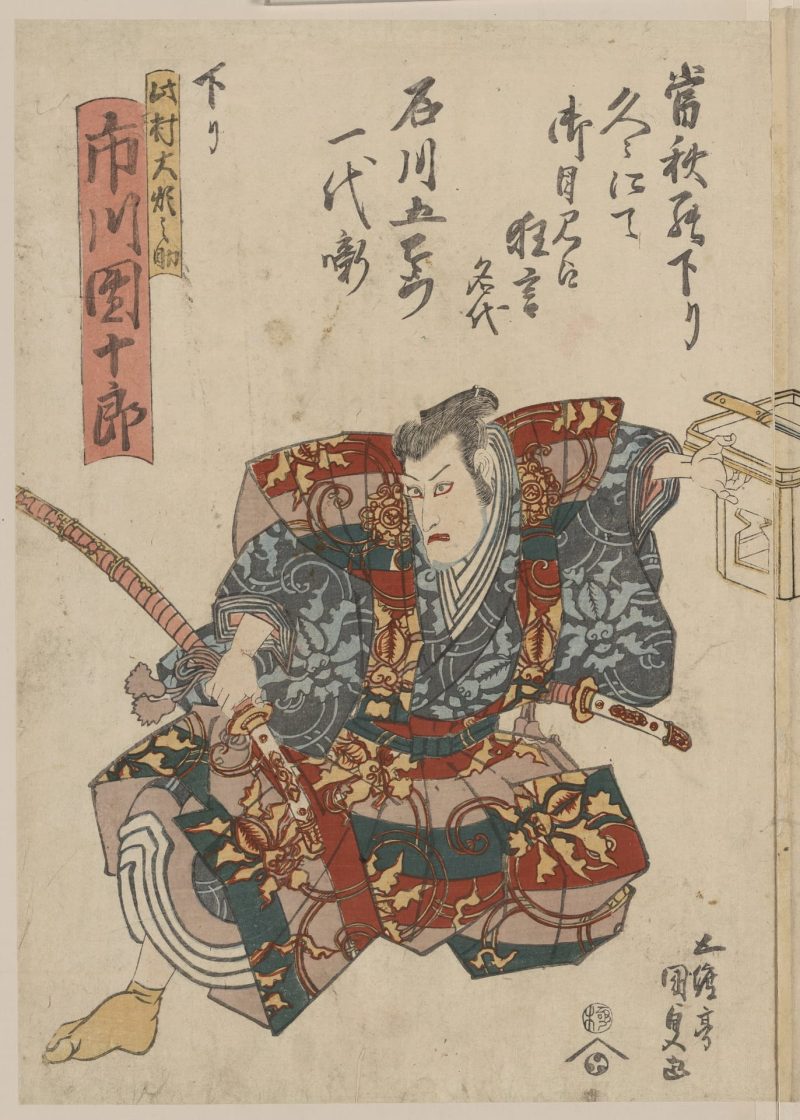 當秋罷下り
久〻にて
狂言
名代
石川五右衛門
一代噺
下り
此村大炊之助
市川團十郎
五渡亭
国貞画
極